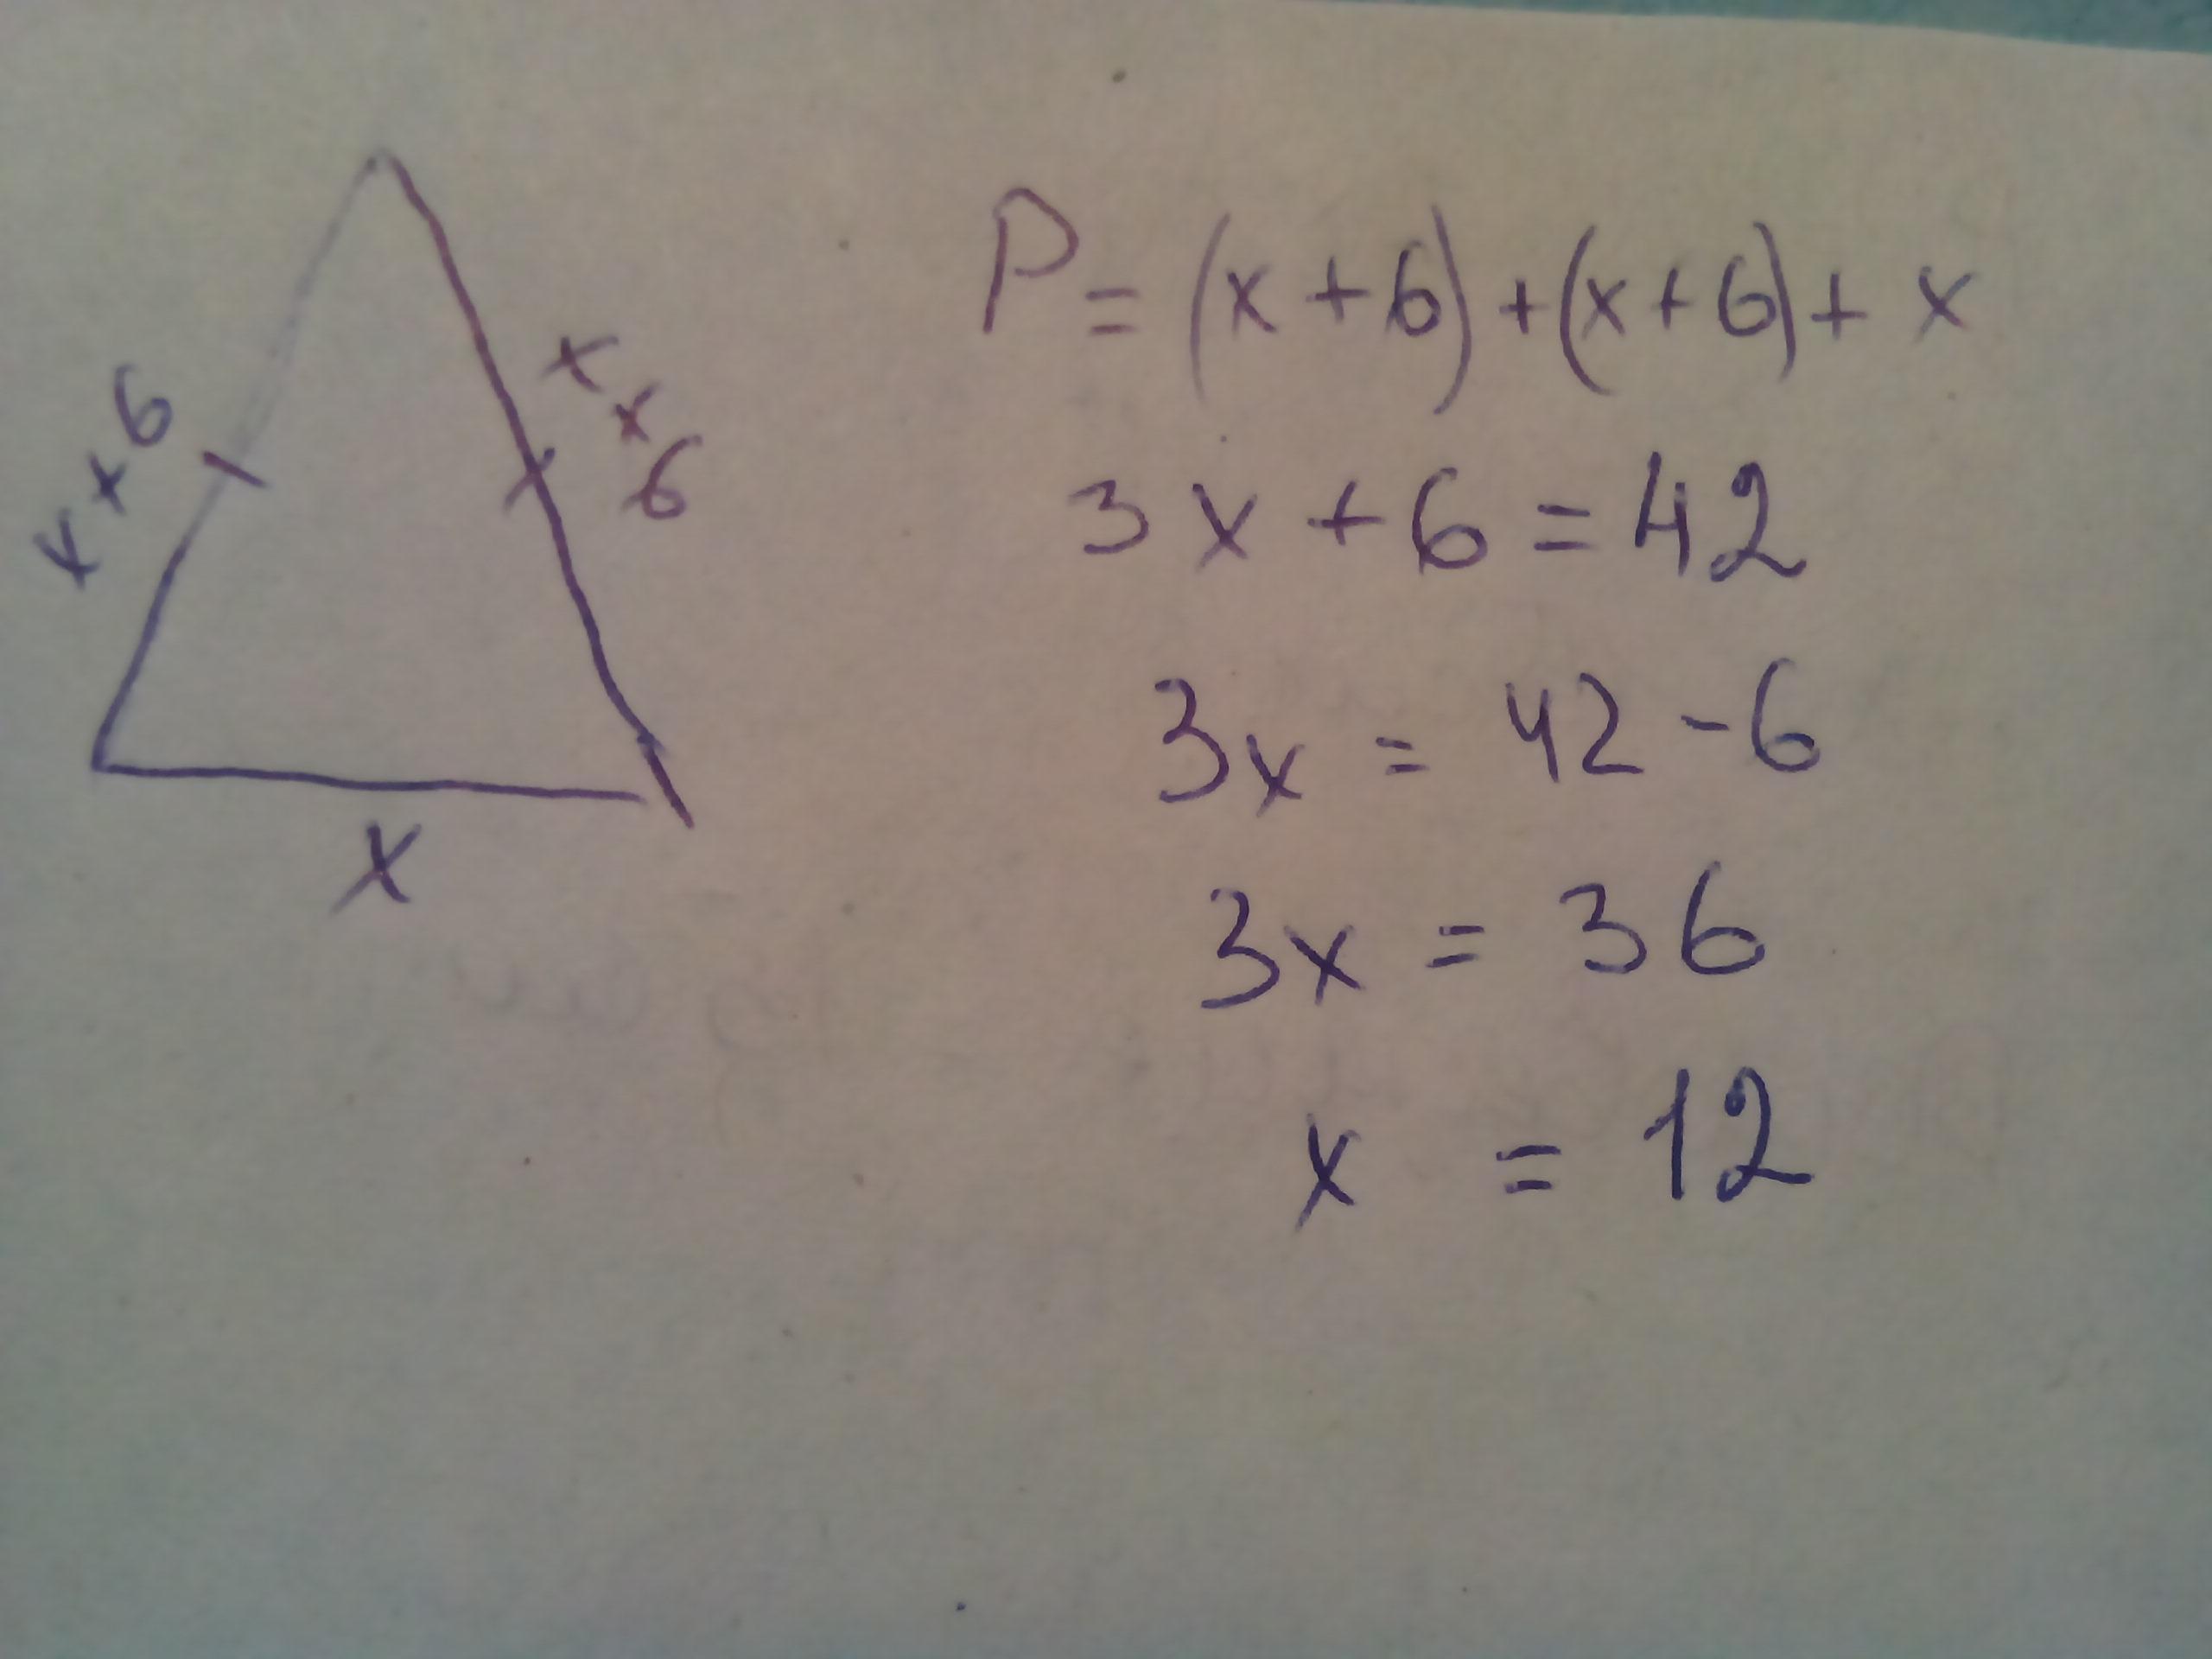 x+6
x+6
x
P = (x+6)+(x+6)+ x
3x+6=42
3x = 42-6
3x = 36
x = 12